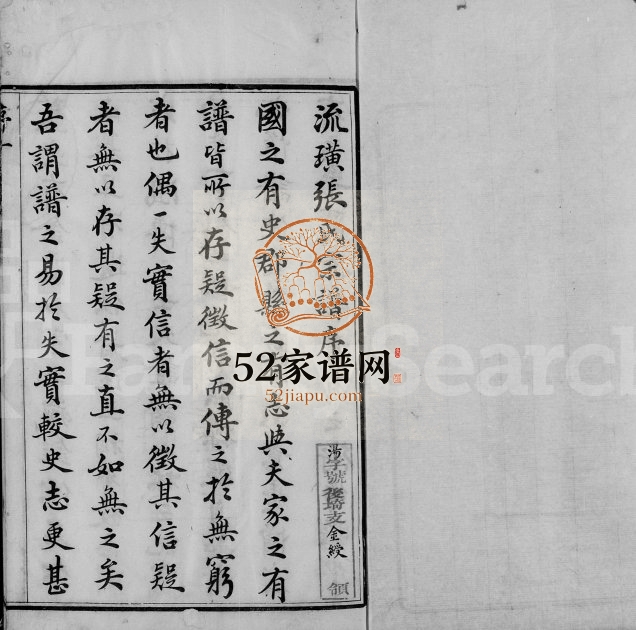 流璜張氏宗譜序
國之有史郡縣之有志與夫家之有
譜皆所以存疑徵信而傳之於無窮
者也偶一失實信者無以徵其信疑
者無以存其疑有之直不如無之矣
吾謂譜之易於失實較史志更甚
序 一
湯字號後埼支金綬 領
52家谱网
52jiapu.com
Search